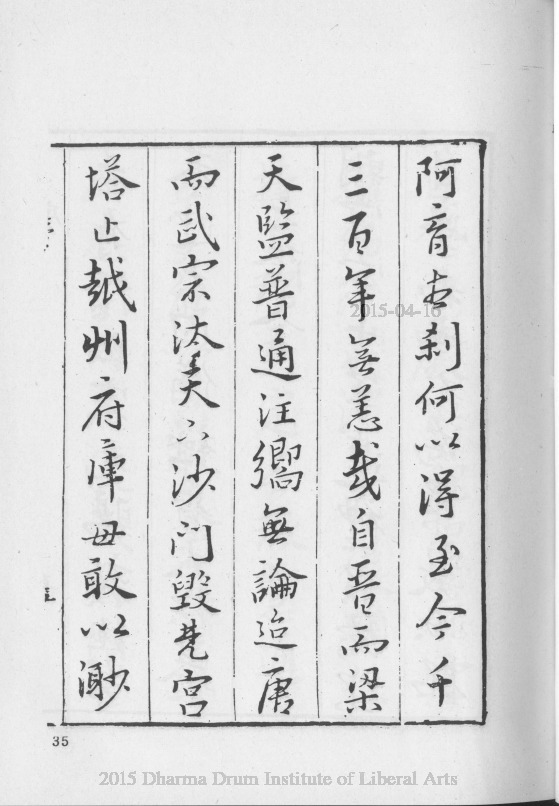 阿育古刹何以得至今千
三百年無恙哉自晉而梁
天監普通注嚮無論迨唐
而武宗汰天下沙門毀梵宮
塔止越州府庫毋敢以渺
35
2015-04-16
2015 Dharma Drum Institute of Liberal Arts